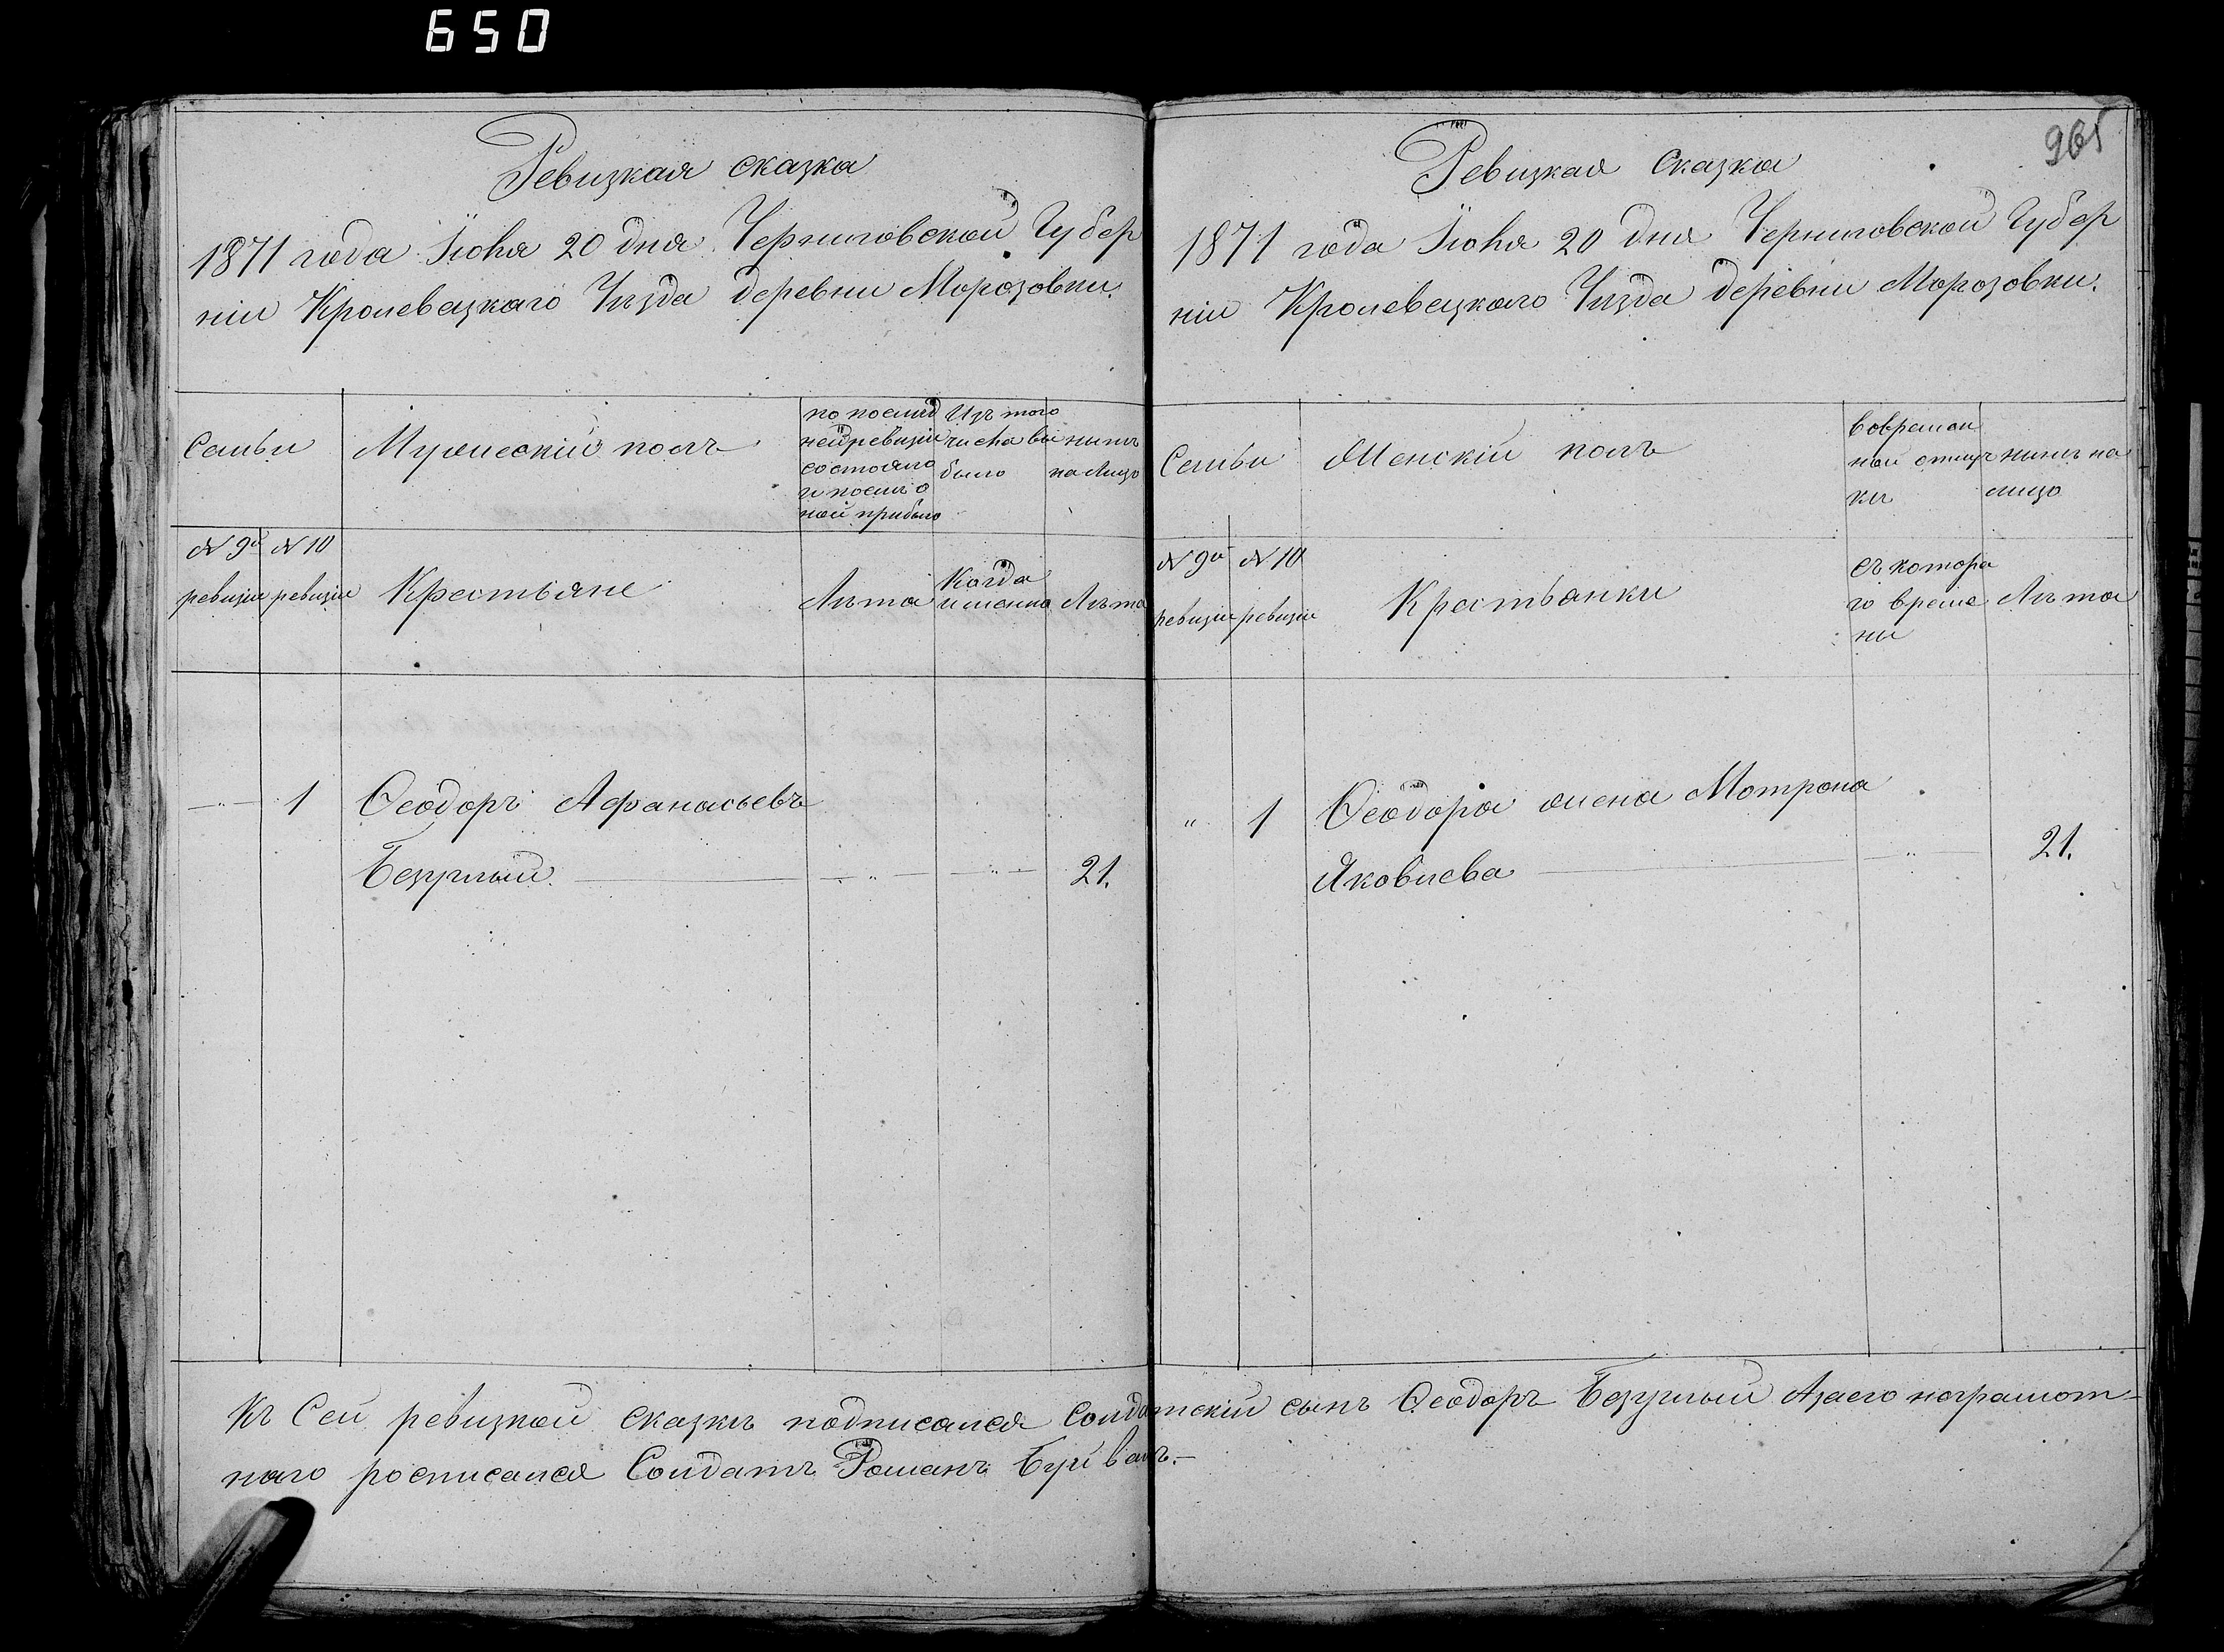 650
Ревизкая сказка
1871 года Іюня 20 дня Черниговской Губер
ніи Кролевецкаго Уѣзда деревни Морозовки.
Семьи
Мужескій полъ
по послѣд
ней ревизіи
состояло
и послѣ о
ной прибыло
Изъ того
числа вы
было
нынѣ
на лицо
№ 9й
ревизіи
№ 10
ревизіи
Крестьяне
Лѣта
Когда
именно
Лѣта
1
Ѳеодоръ Афанасьевъ
Безуглый
21.
965
Ревизкая Сказка
1871 года Іюня 20 дня Черниговской Губер
ніи Кролевецкаго Уѣзда деревни Морозовки.
Семьи
Женскій полъ
вовремен
ной отлуч
кѣ
нынѣ на
лицо
№ 9й
ревизіи
№ 10
ревизіи
Крестьянки
съ котора
го време
ни
Лѣта
" 1
Ѳеодора жена Мотрона
Яковлева
21.
Къ Сей ревизкой сказкѣ подписался Солдатскій сынъ Ѳеодоръ Безуглый Азаего неграмот-
наго росписался Солдатъ Романъ